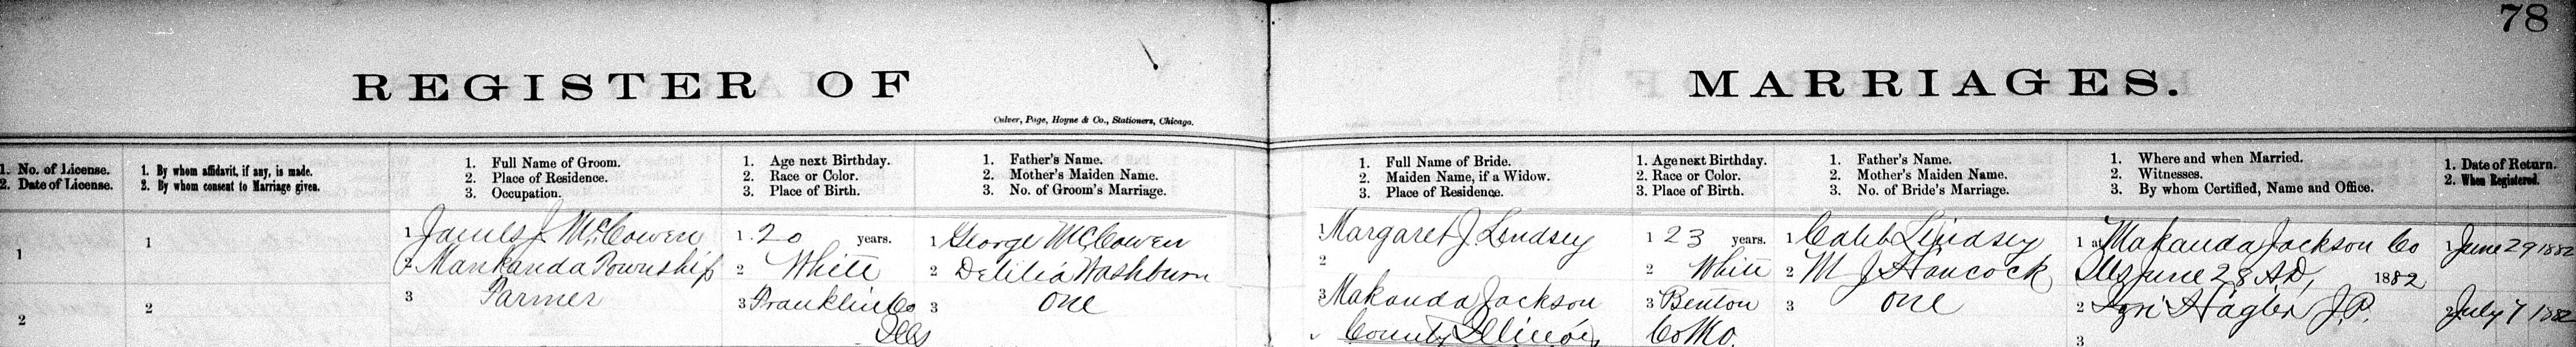 78
REGISTER OF MARRIAGES.
Culver, Page, Hoyne & Co., Stationers, Chicago.
1. No. of License.
2. Date of License.
1. By whom affidavit, if any, is made.
2. By whom consent to Marriage given.
1. Full Name of Groom.
2. Place of Residence.
3. Occupation.
1. Age next Birthday.
2. Race or Color.
3. Place of Birth.
1. Father's Name.
2. Mother's Maiden Name.
3. No. of Groom's Marriage.
1. Full Name of Bride.
2. Maiden Name, if a Widow.
3. Place of Residence.
1. Age next Birthday.
2. Race or Color.
3. Place of Birth.
1. Father's Name.
2. Mother's Maiden Name.
3. No. of Bride's Marriage.
1. Where and when Married.
2. Witnesses.
3. By whom Certified, Name and Office.
1. Date of Return.
2. When Registered.
1
2
1
2
1 James J. McCowen
2 Mankanda Township
3 Farmer
1. 20 years.
2 White
3 Franklin Co
Ills
1 George McCowen
2 Delilia Washburn
3 One
1 Margaret J. Lindsey
2
3 Makanda Jackson
County Illinois
1 23 years.
2 White
3 Benton
Co Mo.
1 Caleb Lindsey
2 M J Hancock
3 One
1 at Makanda Jackson Co
Ills June 28 A.D, 1882
2 Hagler J.P.
3
1 June 29 1882
2 July 7 1882